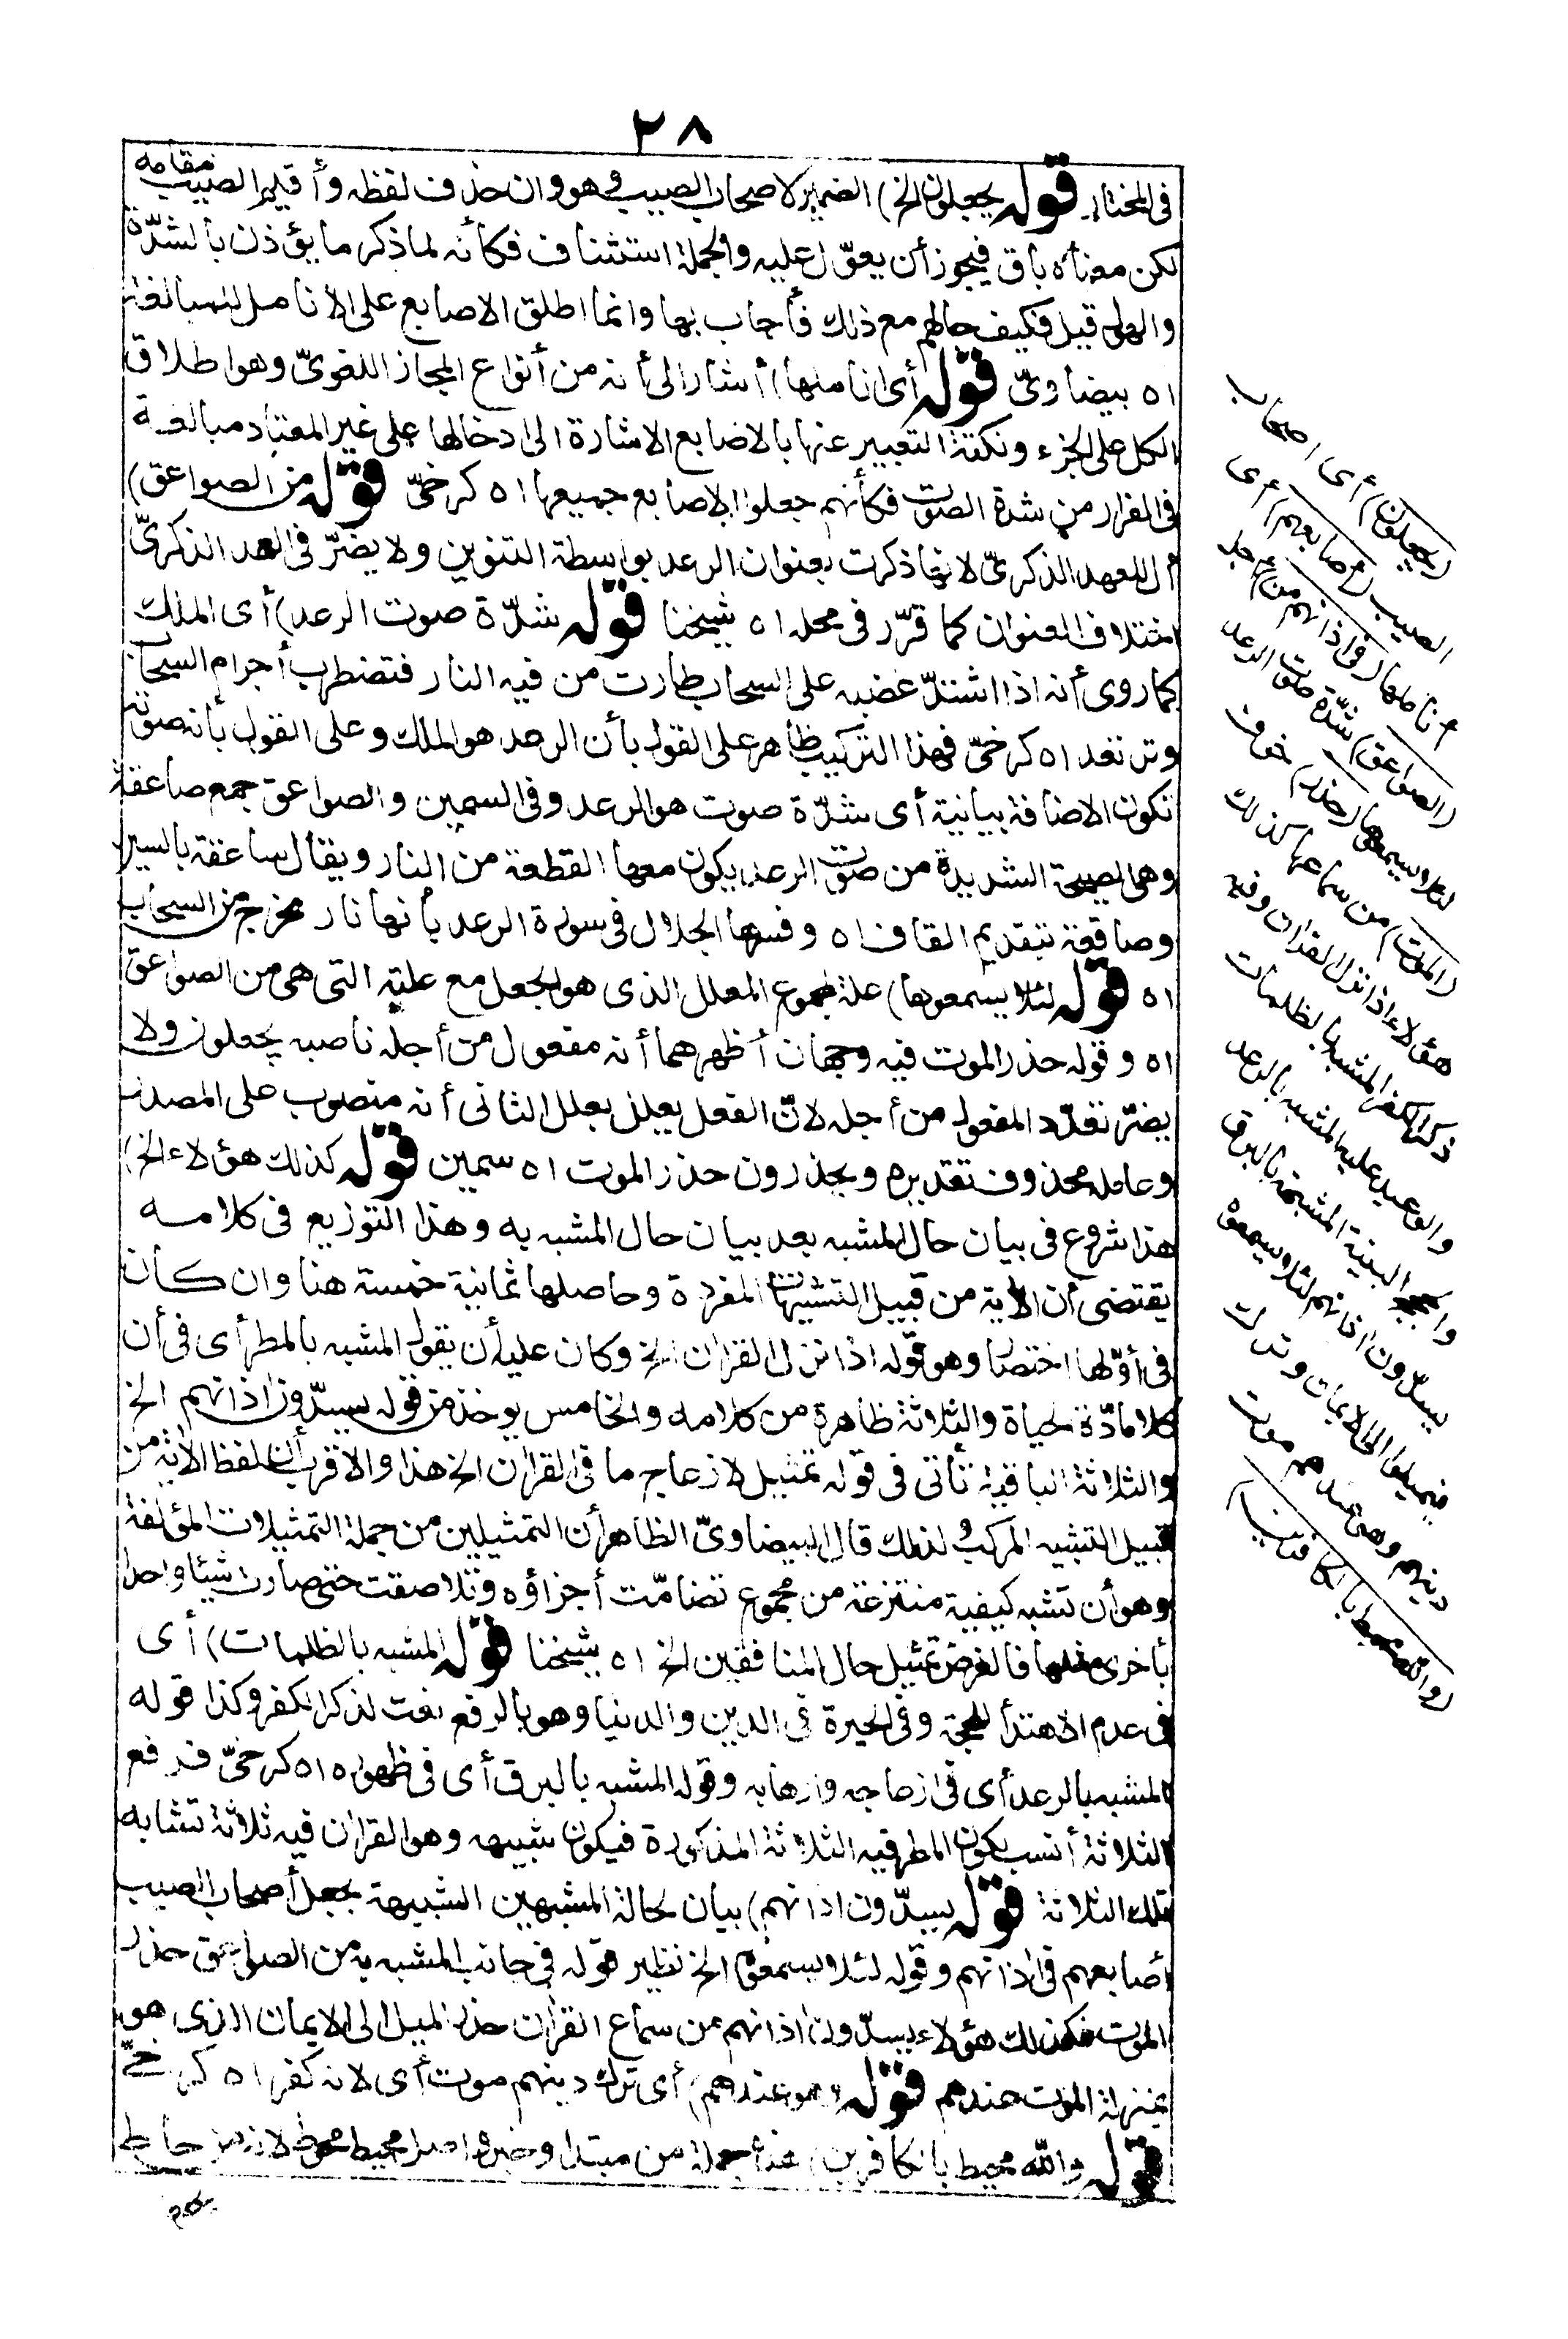 ٢٨
فى المختار قوله يجعلون الخ) الضمير لاصحاب الصيب وهو وان حذف لفظه وأقيم الصيب مقامه
لكن معناه باق فيجوز أن يعوّل عليه والجملة استئناف فكأنه لما ذكر ما يؤذن بالشدّة
والهول قيل فكيف حالهم مع ذلك فأجاب بها وانما اطلق الاصابع على الأنامل للمبالغة
اه بيضاوىّ قوله أى أناملها) أشار الى أنه من أنواع المجاز اللغوىّ وهو اطلاق
الكل على الجزء ونكتة التعبير عنها بالاصابع الاشارة الى ادخالها على غير المعتاد مبالغة
فى الفرار من شدة الصوت فكأنهم جعلوا الاصابع جميعها اه كرخىّ قوله من الصواعق)
أل للعهد الذكرىّ لانها ذكرت بعنوان الرعد بواسطة التنوين ولا يضرّ فى العهد الذكرىّ
اختلاف العنوان كما قرّر فى محله اه شيخنا قوله شدّة صوت الرعد) أى الملك
كما روى أنه اذا اشتدّ غضبه على السحاب طارت من فيه النار فتضطرب أجرام السحاب
وترتعد اه كرخىّ فهذا التركيب ظاهر على القول بأن الرعد هو الملك وعلى القول بأنه صوته
تكون الاضافة بيانية أى شدّة صوت هو الرعد وفى السمين والصواعق جمع صاعقة
وهى الصيحة الشديدة من صوت الرعد يكون معها القطعة من النار ويقال ساعقة بالسين
وصاقعة بتقديم القاف اه وفسرها الجلال فى سورة الرعد بأنها نار تخرج من السحاب
اه قوله لئلا يسمعوها) علة لمجموع المعلل الذى هو الجعل مع علته التى هى من الصواعق
اه وقوله حذر الموت فيه وجهان أظهرهما أنه مفعول من أجله ناصبه يجعلون ولا
يضرّ تعدّد المفعول من أجله لانّ الفعل يعلل بعلل الثانى أنه منصوب على المصدر
وعامله محذوف تقديره ويحذرون حذر الموت اه سمين قوله كذلك هؤلاء الخ)
هذا شروع فى بيان حال المشبه بعد بيان حال المشبه به وهذا التوزيع فى كلامه
يقتضى أن الآية من قبيل التشبيهات المفردة وحاصلها ثمانية خمسة هنا وان كان
فى أوّلها اختصار وهو قوله اذا نزل القرآن الخ وكان عليه أن يقول المشبه بالمطر أى فى أن
كلا مادّة الحياة والثلاثة ظاهرة من كلامه والخامس يؤخذ من قوله يسدّون آذانهم الخ
والثلاثة الباقية تأتى فى قوله تمثيل لازعاج ما فى القرآن الخ هذا والاقرب أن لفظ الآية من
قبيل التشبيه المركب لذلك قال البيضاوىّ الظاهر أن التمثيلين من جملة التمثيلات المؤلفة
وهو أن تشبه كيفية منتزعة من مجموع تضامّت أجزاؤه وتلاصقت حتى صارت شيئا واحدا
بأخرى مثلها فالغرض تمثيل حال المنافقين الخ اه شيخنا قوله المشبه بالظلمات) أى
فى عدم الاهتداء للمحجة وفى الحيرة فى الدين والدنيا وهو بالرفع نعت لذكر الكفر وكذا قوله
المشبه بالرعد أى فى ازعاجه وارهابه وقوله المشبه بالبرق أى فى ظهوره اه كرخىّ فرفع
الثلاثة أنسب بكون المطر فيه الثلاثة المذكورة فيكون شبيهه وهو القرآن فيه ثلاثة تشابه
تلك الثلاثة قوله يسدّون آذانهم) بيان لحالة المشبهين الشبيهة بجعل أصحاب الصيب
أصابعهم فى آذانهم وقوله لئلا يسمعوه الخ نظير قوله فى جانب المشبه به من الصواعق حذر
الموت فكذلك هؤلاء يسدّون آذانهم من سماع القرآن حذر الميل الى الايمان الذى هو
بمنزلة الموت عندهم قوله وهو عندهم) أى ترك دينهم موت أى لانه كفر اه كرخىّ
قوله والله محيط بالكافرين) هذه جملة من مبتدا وخبر وأصل محيط محوط لانه من حاط
(يجعلون) أى اصحاب
الصيب (أصابعهم) أى
أناملها (فى آذانهم من) أجل
(الصواعق) شدّة صوت الرعد
لئلا يسمعوها (حذر) خوف
(الموت) من سماعها كذلك
هؤلاء اذا نزل القرآن وفيه
ذكر الكفر المشبه بالظلمات
والوعيد عليه المشبه بالرعد
والحجج البينة المشبهة بالبرق
يسدّون آذانهم لئلا يسمعوه
فيميلوا الى الايمان وترك
دينهم وهو عندهم موت
(والله محيط بالكافرين)